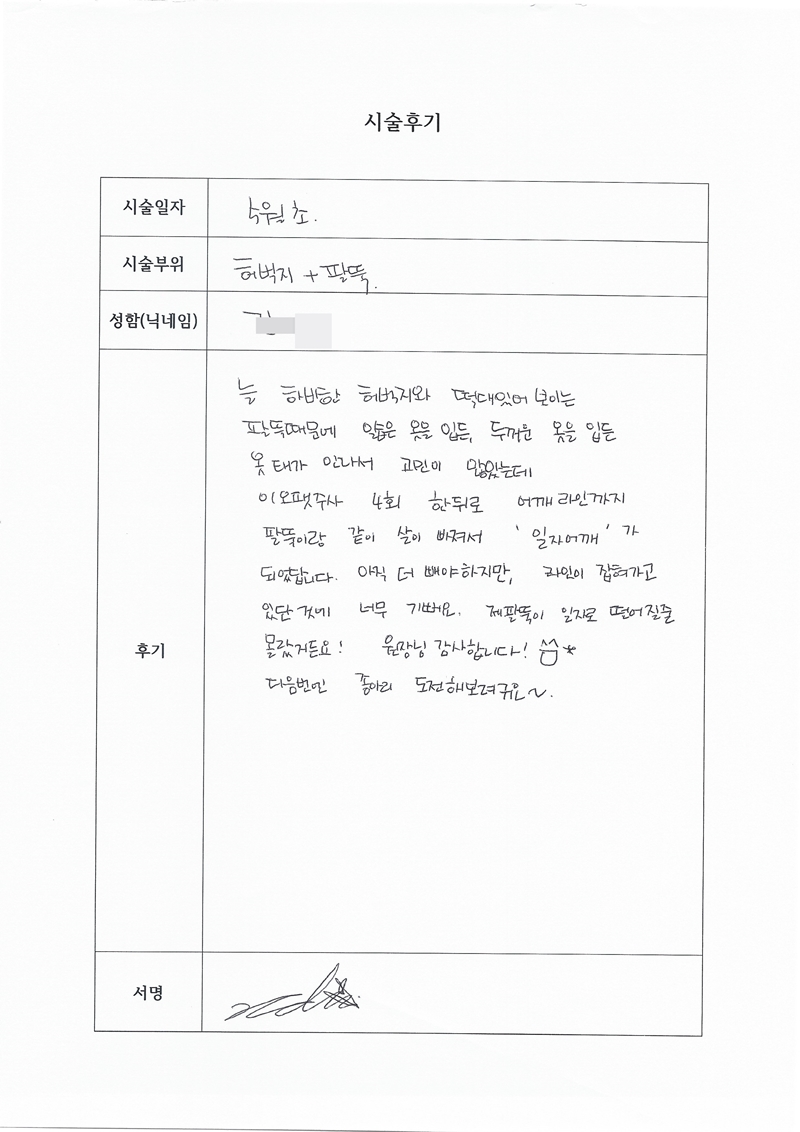 시술후기
시술일자
속월초.
시술부위
허벅지 + 팔뚝.
성함(닉네임)
늘 하비한 허벅지와 떡대있어 보이는
팔뚝때문에 얇은 옷을 입든, 두꺼운 옷을 입든
옷 태가 안나서 고민이 많았는데
이오팻주사 4회 한뒤로 어깨라인까지
팔뚝이랑 같이 살이 빠져서 '일자어깨'가
되었답니다. 아직 더 빼야하지만, 라인이 잡혀가고
있단 것에 너무 기뻐요. 제팔뚝이 일자로 떨어질줄
몰랐거든요! 원장님 감사합니다!
다음번엔 종아리 도전해보려구요~.
후기
서명